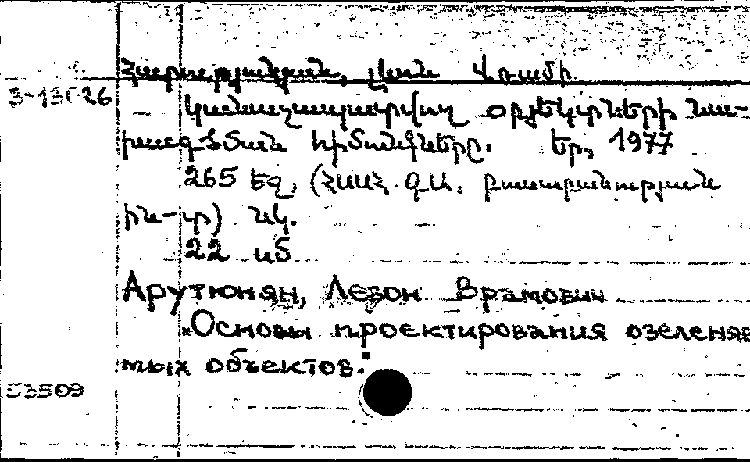 Հարությունյան, Լևոն Վռամի
3-13626
Կանաչապատվող օբյեկտների նա-
խագծման հիմունքները. Եր., 1977
265 եզ, (ՀՍՍՀ ԳԱ. Բուսաբանության
ին-տ) նկ.
22 սմ
Арутюнян, Левон Врамович
Основы проектирования озеленяе
мых объектов.
53509